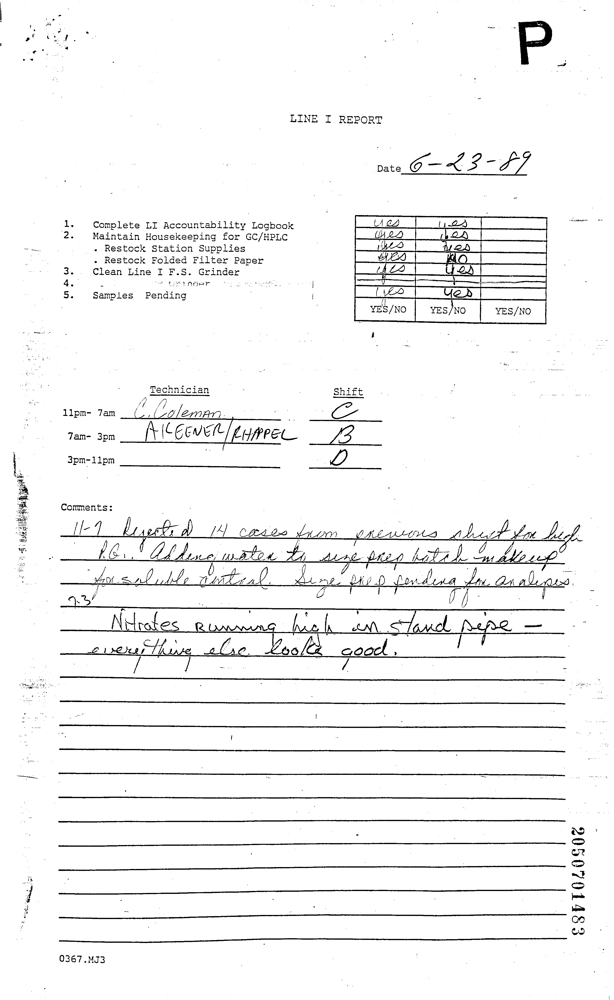 P
LINE I REPORT
Date 6-23-89
1. Complete LI Accountability Logbook yes yes
2. Maintain Housekeeping for GC/HPLC yes yes
. Restock Station Supplies yes yes
. Restock Folded Filter Paper yes NO
3. Clean Line I F.S. Grinder yes yes
4.
5. Samples Pending yes yes
YES/NO YES/NO YES/NO
Technician Shift
11pm- 7am C. Coleman C
7am- 3pm A KEENER/RHAPPEL B
3pm-11pm D
Comments:
11-7 Rejected 14 cases from previous shift for high
P.G.. Adding water to size prep batch makeup
for soluble control. Size prep pending for analysis.
7-3
Nitrates running high in stand pipe —
everything else looks good.
2050701483
0367.MJ3